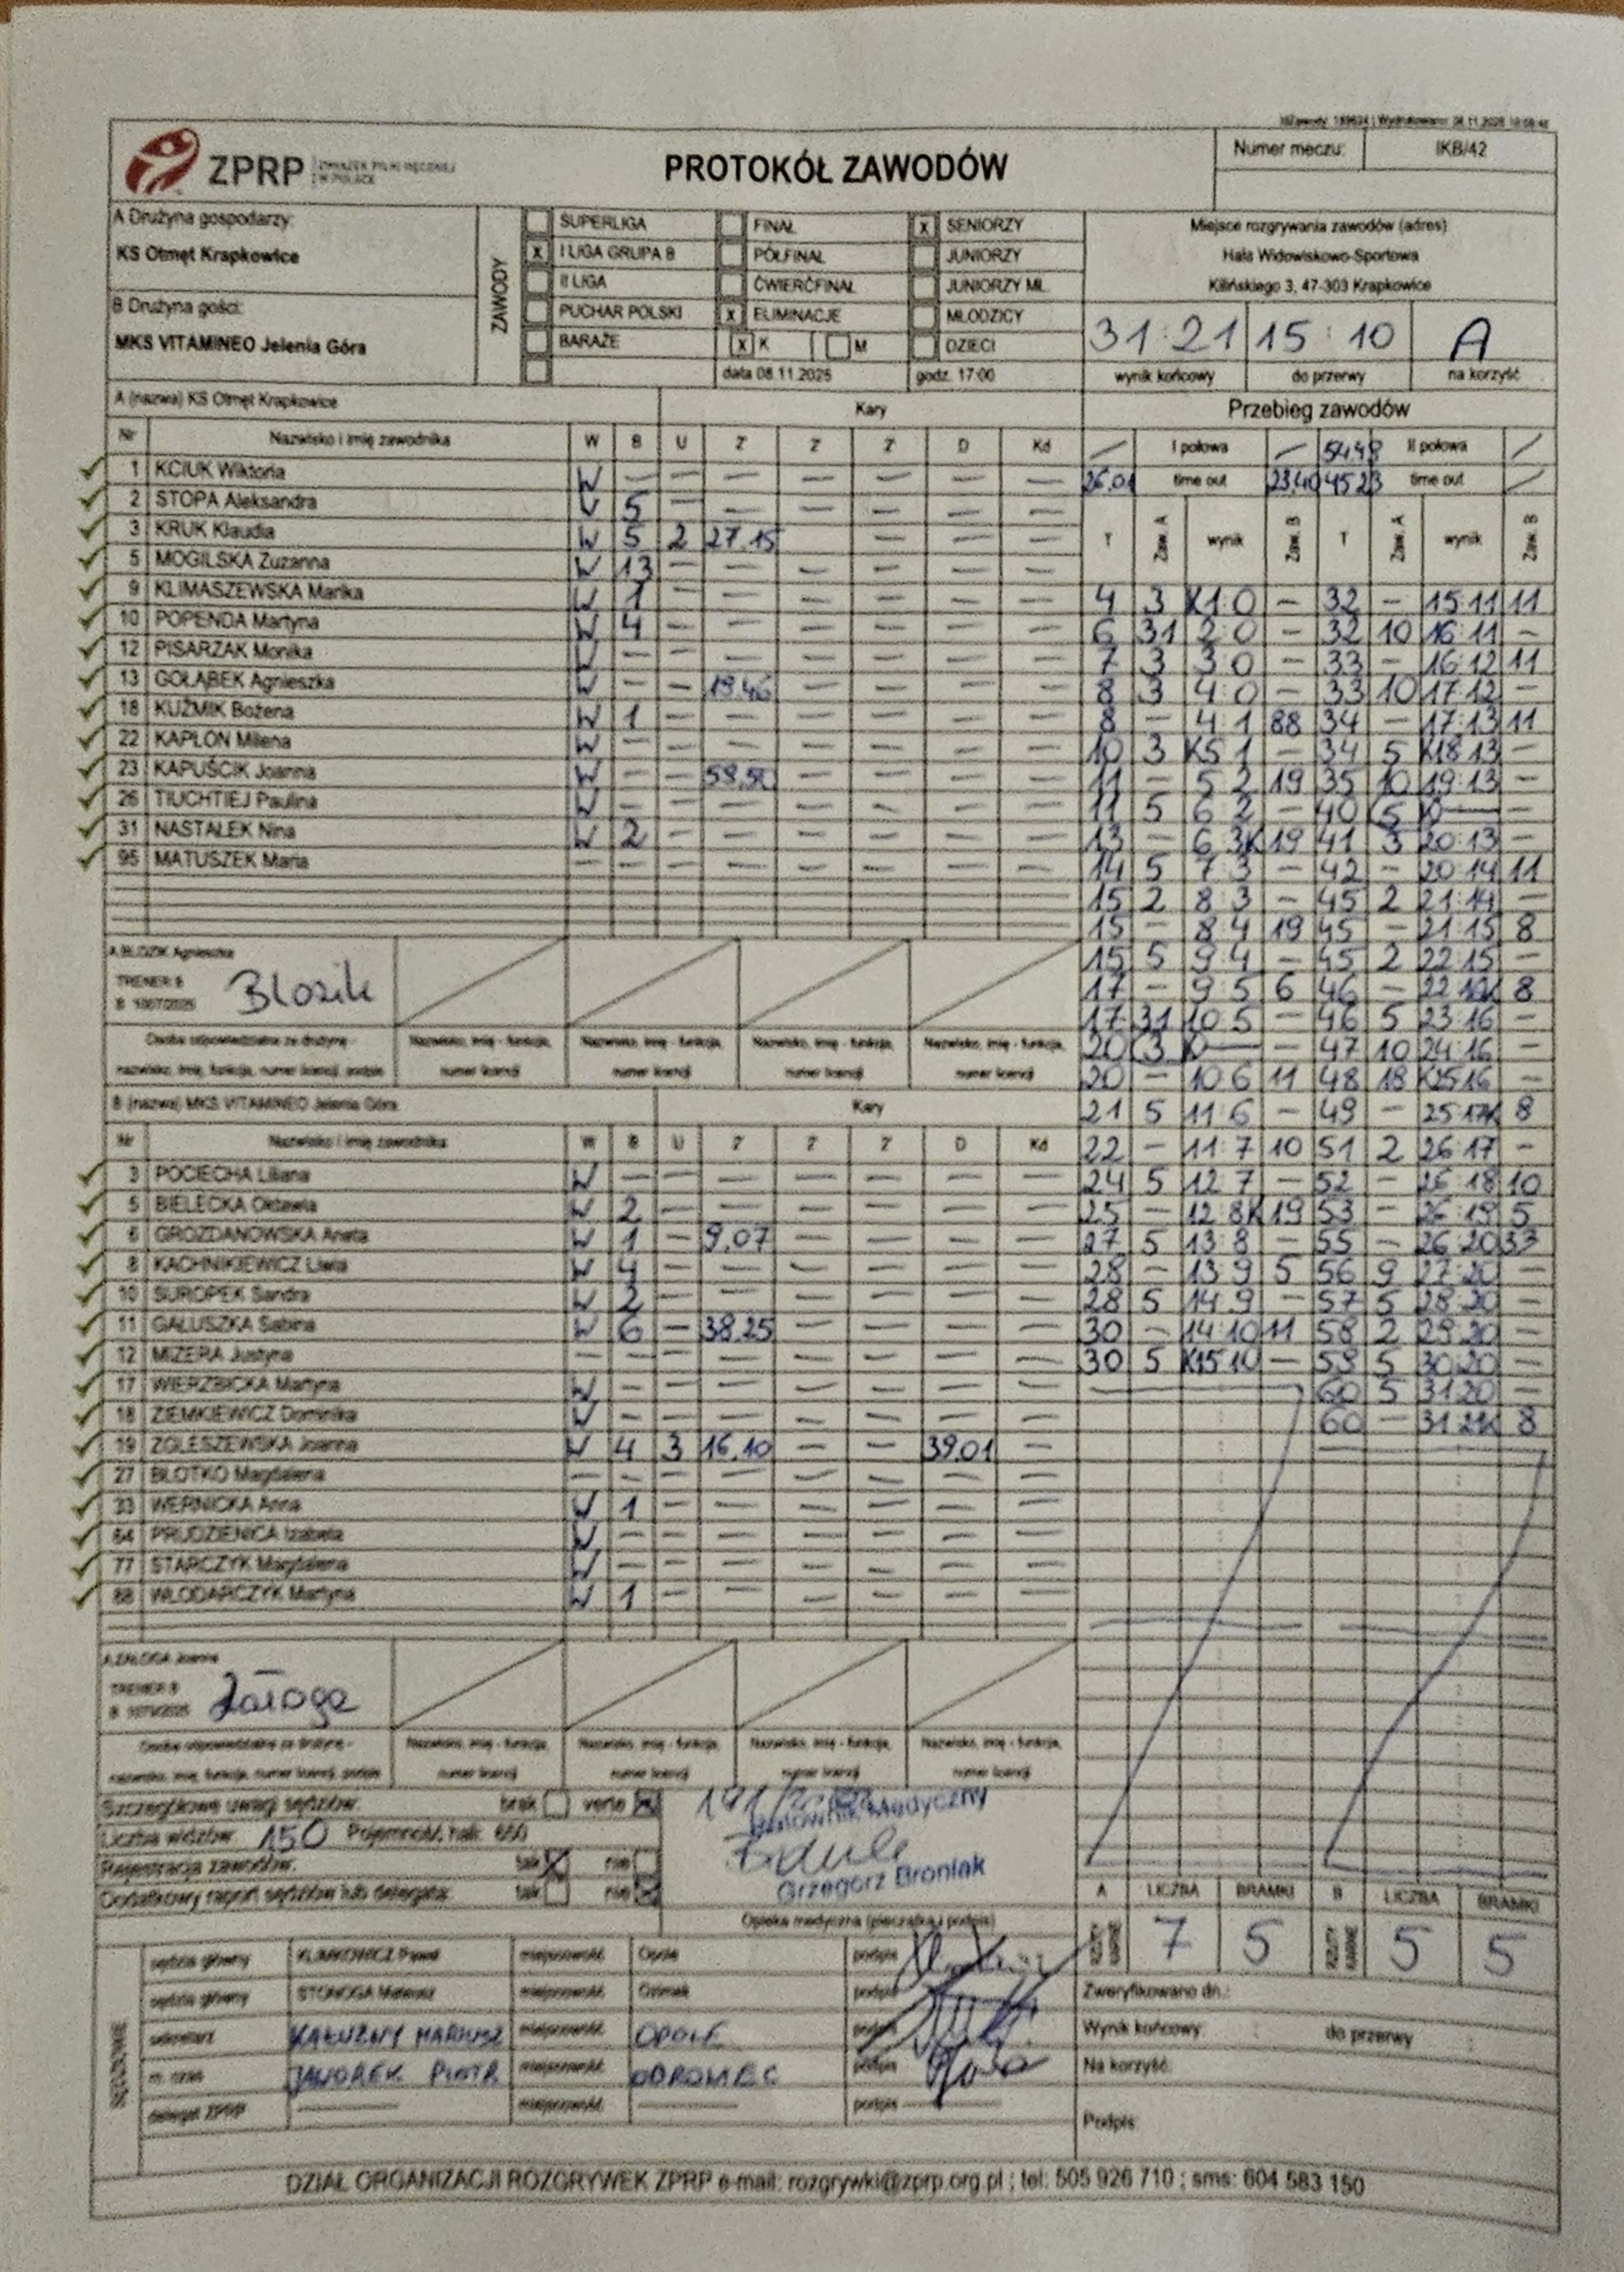 PROTOKÓŁ ZAWODÓW
ZPRP ZWIĄZEK PIŁKI RĘCZNEJ W POLSCE
Numer meczu: IKB/42
A Drużyna gospodarzy:
KS Otmęt Krapkowice
B Drużyna gości:
MKS VITAMINEO Jelenia Góra
ZAWODY
SUPERLIGA FINAŁ x SENIORZY
x I LIGA GRUPA B PÓŁFINAŁ JUNIORZY
II LIGA ĆWIERĆFINAŁ JUNIORZY MŁ.
PUCHAR POLSKI x ELIMINACJE MŁODZICY
BARAŻE x K M DZIECI
data 08.11.2025 godz. 17:00
Miejsce rozgrywania zawodów (adres)
Hala Widowiskowo-Sportowa
Kilińskiego 3, 47-303 Krapkowice
31:21 15:10 A
wynik końcowy do przerwy na korzyść
A (nazwa) KS Otmęt Krapkowice Kary
Nr Nazwisko i imię zawodnika W B U 2' 2' 2' D Kd
1 KCIUK Wiktoria W — — — — — — —
2 STOPA Aleksandra W 5 — — — — — —
3 KRUK Klaudia W 5 2 27.15 — — —
5 MOGILSKA Zuzanna W 13 — — — — — —
9 KLIMASZEWSKA Marika W 1 — — — — — —
10 POPENDA Martyna W 4 — — — — — —
12 PISARZAK Monika W — — — — — — —
13 GOŁĄBEK Agnieszka W — — 19.46 — — — —
18 KUŹMIK Bożena W 1 — — — — — —
22 KAPLON Milena W — — — — — — —
23 KAPUŚCIK Joanna W — — — — — —
26 TIUCHTIEJ Paulina W — — — — — — —
31 NASTAŁEK Nina W 2 — — — — — —
95 MATUSZEK Maria — — — — — — — —
A BLOZIK Agnieszka
TRENER B
Blozik
Osoba odpowiedzialna za drużynę -
nazwisko, imię, funkcja, numer licencji, podpis
Nazwisko, imię - funkcja, Nazwisko, imię - funkcja, Nazwisko, imię - funkcja, Nazwisko, imię - funkcja,
numer licencji numer licencji numer licencji numer licencji
B (nazwa) MKS VITAMINEO Jelenia Góra Kary
Nr Nazwisko i imię zawodnika W B U 2' 2' 2' D Kd
3 POCIECHA Liliana W — — — — — — —
5 BIELECKA Oktawia W 2 — — — — — —
6 GROZDANOWSKA Aneta W 1 — 9.07 — — — —
8 KACHNIKIEWICZ Liwia W 4 — — — — — —
10 SUROPEK Sandra W 2 — — — — — —
11 GAŁUSZKA Sabina W 6 — 38.25 — — — —
12 MIZERA Justyna — — — — — — — —
17 WIERZBICKA Martyna W — — — — — — —
18 ZIEMKIEWICZ Dominika W — — — — — — —
19 ZOLESZEWSKA Joanna W 4 3 16.10 — — 39.01 —
27 BŁOTKO Magdalena — — — — — — — —
33 WERNICKA Anna W 1 — — — — — —
64 PRUDZIENICA Izabela W — — — — — — —
77 STARCZYK Magdalena W — — — — — — —
88 WŁODARCZYK Martyna W 1 — — — — —
A ZAŁOGA Joanna
TRENER B
Załoga
Osoba odpowiedzialna za drużynę -
nazwisko, imię, funkcja, numer licencji, podpis
Nazwisko, imię - funkcja, Nazwisko, imię - funkcja, Nazwisko, imię - funkcja, Nazwisko, imię - funkcja,
numer licencji numer licencji numer licencji numer licencji
Przebieg zawodów
/ I połowa / 54.48 II połowa /
26.01 time out 23.40 45.23 time out /
T Zaw. A wynik Zaw. B T Zaw. A wynik Zaw. B
4 3 K1 0 — 32 — 15:11 11
6 31 2 0 — 32 10 16:11 —
7 3 3 0 — 33 — 16:12 11
8 3 4 0 — 33 10 17:12 —
8 — 4 1 88 34 — 17:13 11
10 3 K5 1 — 34 5 K18 13 —
11 — 5 2 19 35 10 19:13 —
11 5 6 2 — 40 (5 K — —
13 — 6 3K 19 41 3 20:13 —
14 5 7 3 — 42 — 20 14 11
15 2 8 3 — 45 2 21:14 —
15 — 8 4 19 45 — 21:15 8
15 5 9 4 — 45 2 22 15 —
17 — 9 5 6 46 — 22 16K 8
17 31 10 5 — 46 5 23 16 —
20 (3 K — — 47 10 24 16 —
20 — 10 6 11 48 18 K25 16 —
21 5 11 6 — 49 — 25 17K 8
22 — 11 7 10 51 2 26 17 —
24 5 12 7 — 52 — 26 18 10
25 — 12 8K 19 53 — 26 19 5
27 5 13 8 — 55 — 26 20 33
28 — 13 9 5 56 9 27:20 —
28 5 14 9 — 57 5 28 20 —
30 — 14:10 11 58 2 29:20 —
30 5 K15 10 — 59 5 30 20 —
60 5 31 20 —
60 — 31 21K 8
Szczegółowe uwagi sędziów: brak verte x
Liczba widzów 150 Pojemność hali: 650
Rejestracja zawodów: tak x nie
Dodatkowy raport sędziów lub delegata: tak nie x
Ratownik Medyczny
Grzegorz Broniak
Opieka medyczna (pieczątka i podpis)
A LICZBA BRAMKI B LICZBA BRAMKI
RZUTY KARNE 7 5 RZUTY KARNE 5 5
SĘDZIOWIE
sędzia główny KLIMKOWICZ Paweł miejscowość Opole podpis
sędzia główny STONOGA Mateusz miejscowość Ozimek podpis
sekretarz KAŁUŻNY MARIUSZ miejscowość OPOLE podpis
m. czasu JAWOREK PIOTR miejscowość podpis
delegat ZPRP — miejscowość — podpis —
Zweryfikowano dn.:
Wynik końcowy: : do przerwy :
Na korzyść:
Podpis:
DZIAŁ ORGANIZACJI ROZGRYWEK ZPRP e-mail: rozgrywki@zprp.org.pl ; tel: 505 926 710 ; sms: 604 583 150